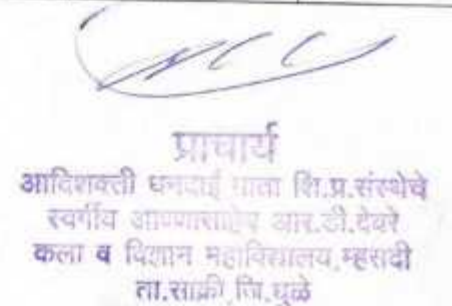 प्राचार्य
आदिशक्ती धनदाई माता शि.प्र.संस्थेचे
स्वर्गीय आण्णासाहेब आर.डी.देवरे
कला व विज्ञान महाविद्यालय,म्हसदी
ता.साक्री,जि.धुळे